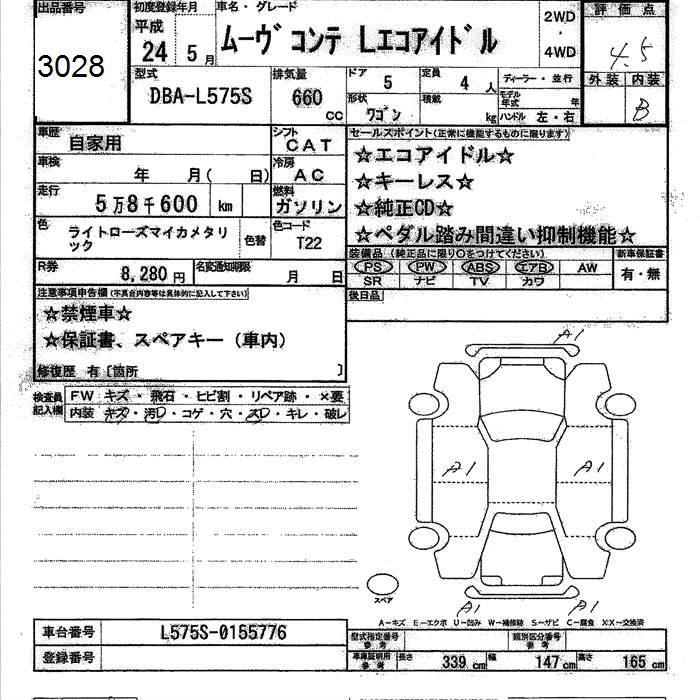 出品番号
3028
初度登録年月
平成
24 5月
車名・グレード
ムーヴ コンテ Lエコアイドル
2WD
・
4WD
評価点
4.5
外装 内装
B
型式
DBA-L575S
排気量
660
CC
ドア
5
定員
4 人
形状
ワゴン
積載
kg
ディーラー・並行
モデル年式 年
ハンドル 左・右
車歴
自家用
シフト
CAT
車検
年 月( 日)
冷房
AC
走行
5万8千600 km
燃料
ガソリン
色
ライトローズマイカメタリ
ック
色替
色コード
T22
R券
8,280円
名変通知期限
月 日
セールスポイント(正常に機能するものに限ります)
☆エコアイドル☆
☆キーレス☆
☆純正CD☆
☆ペダル踏み間違い抑制機能☆
装備品(純正品に限り○をつけてください)
PS PW ABS エアB AW
SR ナビ TV カワ
新車保証書
有・無
後日品
注意事項申告欄(不具合内容等は具体的に記入して下さい)
☆禁煙車☆
☆保証書、スペアキー(車内)
修復歴 有〔箇所 〕
検査員
記入欄
FW キズ・飛石・ヒビ割・リペア跡・×要
内装 キズ・汚D・コゲ・穴・スD・キレ・破レ
A1
A1
A1
A1
スペア
A-キズ E-エクボ U-凹み W-補修跡 S-サビ C-腐食 XX-交換済
車台番号
L575S-0155776
登録番号
型式指定番号
参考
類別区分番号
参考
車庫証明用
参考
長さ 339cm 幅 147cm 高さ 165cm